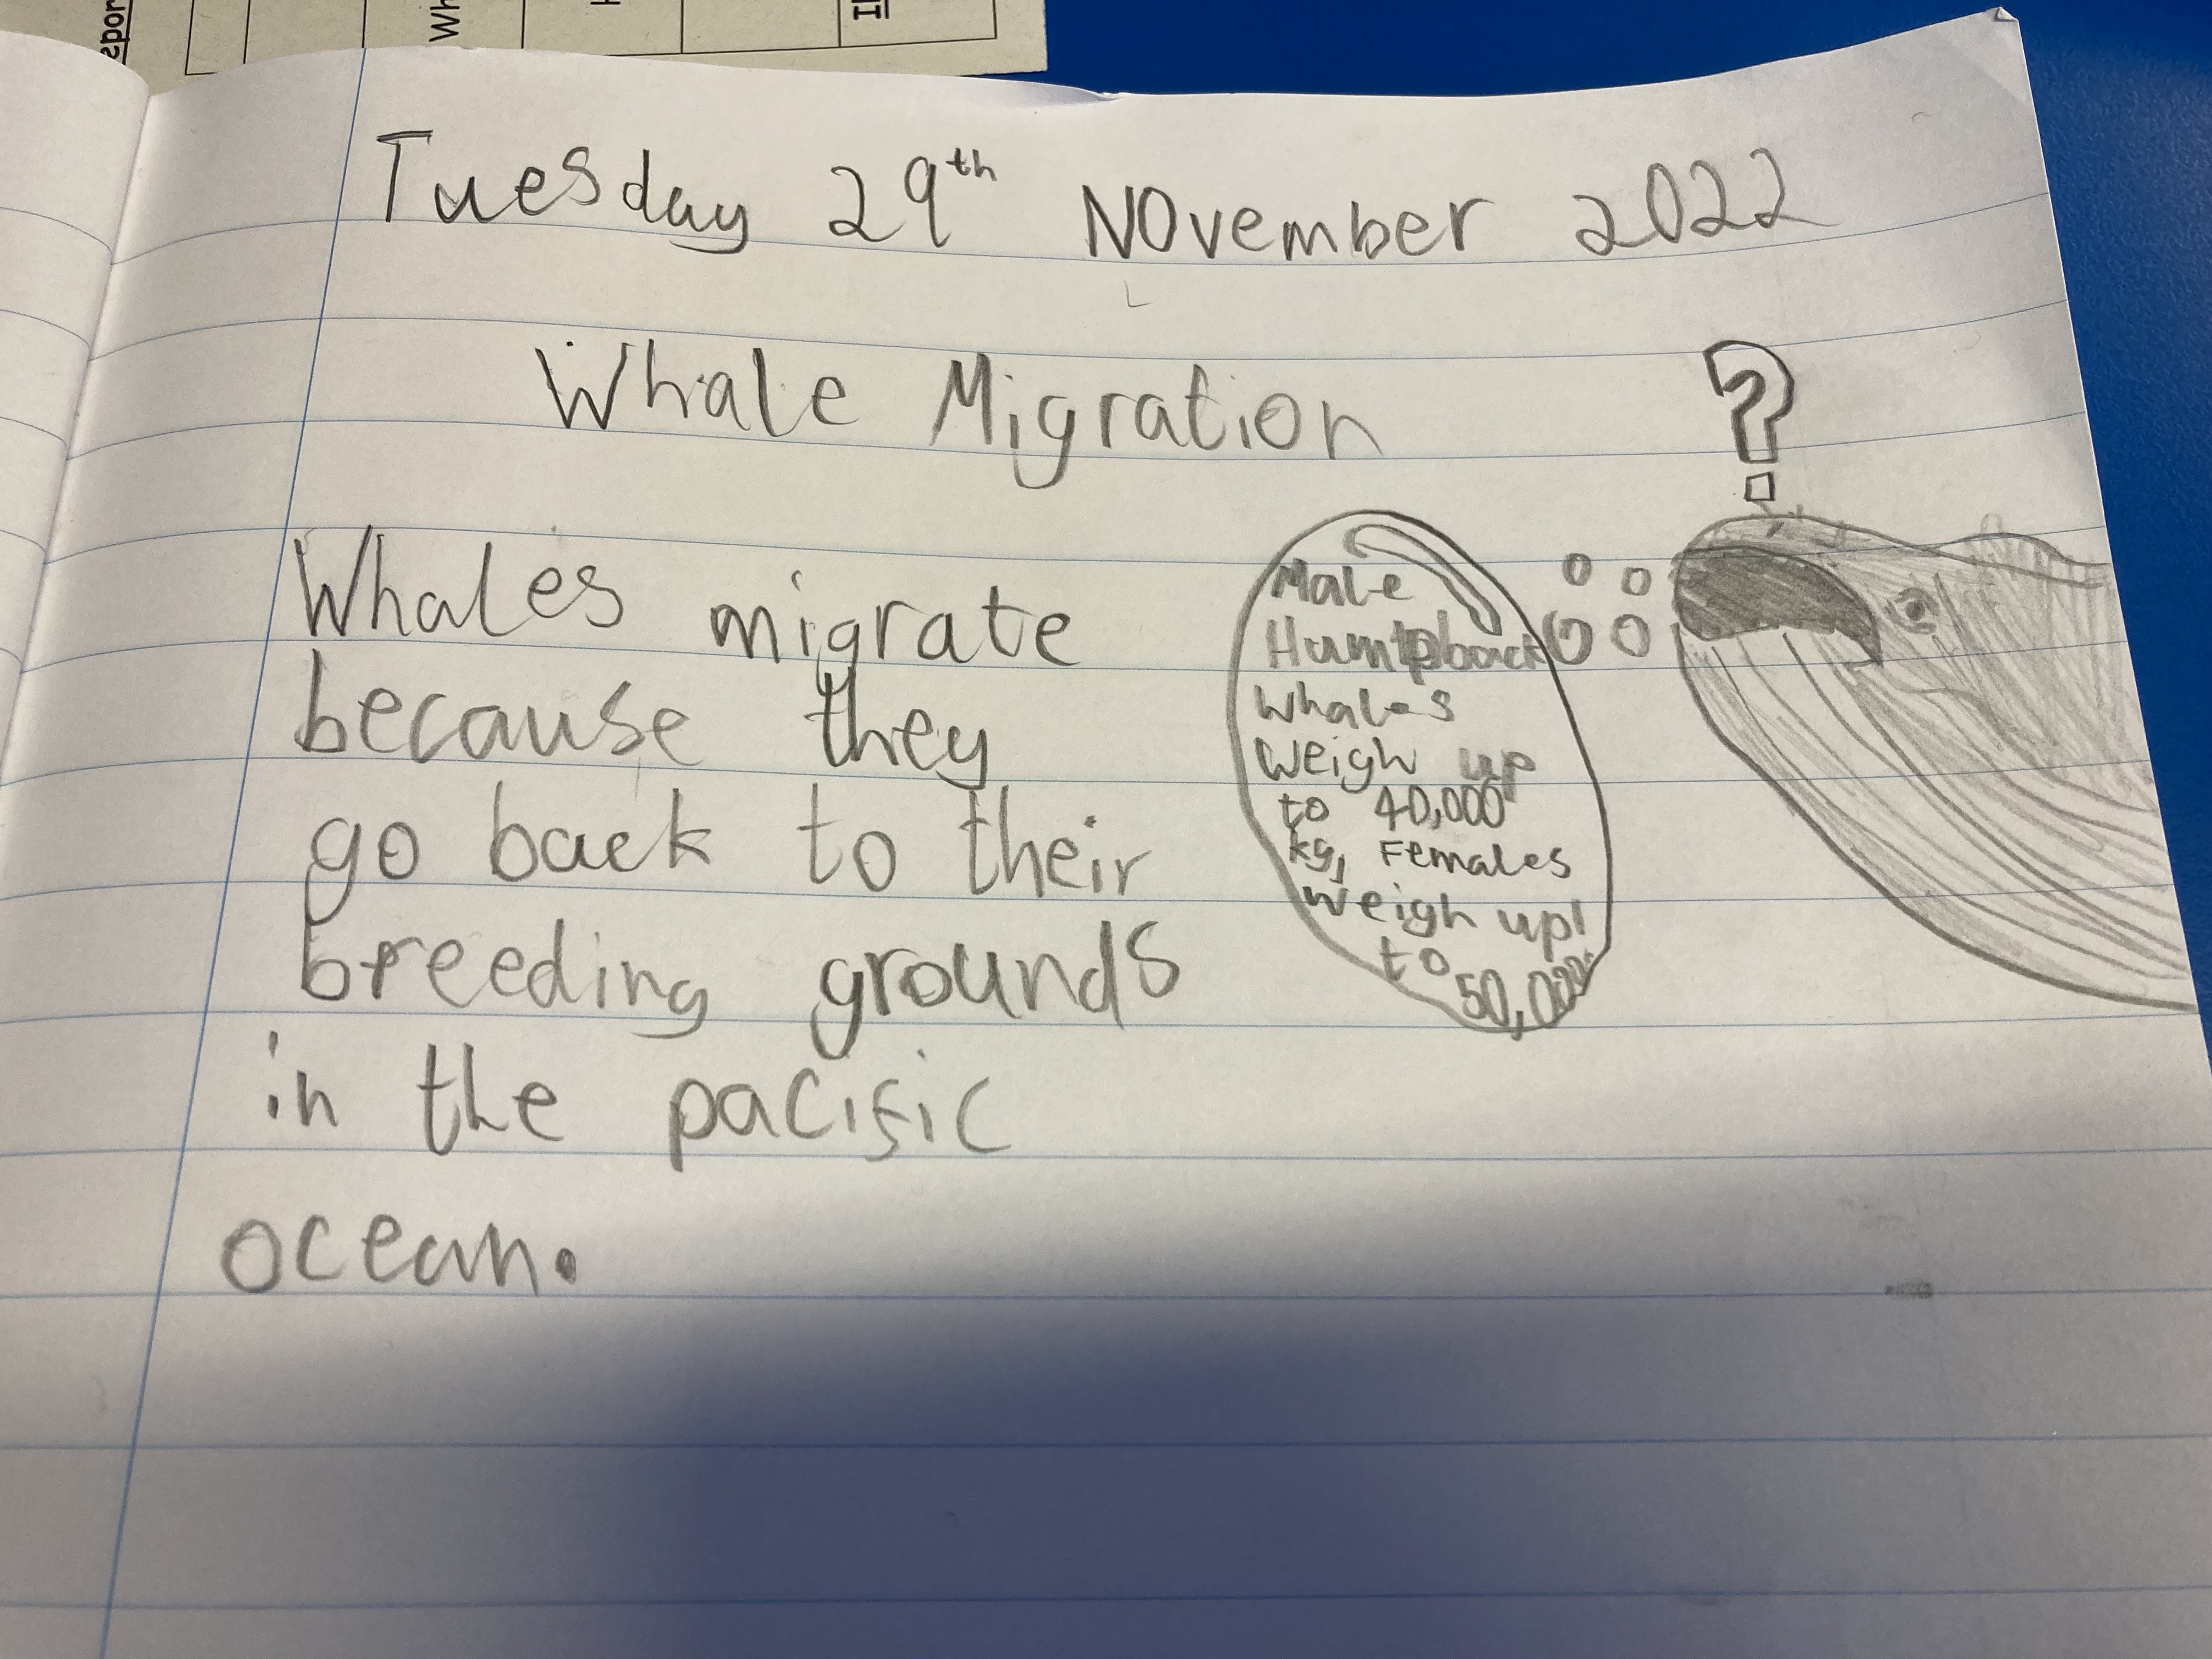 epor
Wh
Tuesday 29th November 2022
Whale Migration
?
Whales migrate
because they
go back to their
breeding grounds
in the pacific
ocean.
Male
Humpback
Whales
Weigh up
to 40,000
kg, Females
Weigh up!
to 50,000